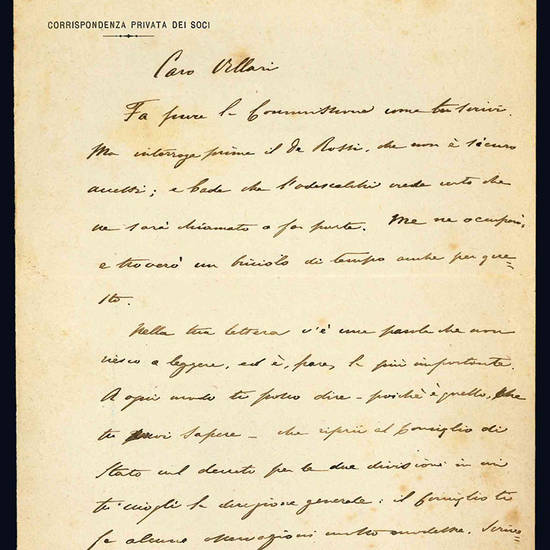 CORRISPONDENZA PRIVATA DEI SOCI
Caro Villari
Fa pure la Commissione come tu scrivi.
Ma interroga prima il De Rossi, che non è sicuro
accetti; e bada che l'Odescalchi crede certo che
ne sarà chiamato a far parte. Me ne occuperò,
e troverò un briciolo di tempo anche per que-
sto.
Nella tua lettera c'è una parola che non
riesco a leggere, ed è, pare, la più importante.
A ogni modo ti posso dire - poichè è quello, che
tu vuoi sapere - che riferii al Consiglio di
Stato sul decreto per le due divisioni in cui
tu sciogli la direzione generale: il Consiglio ti
fa alcune osservazioni molto modeste.